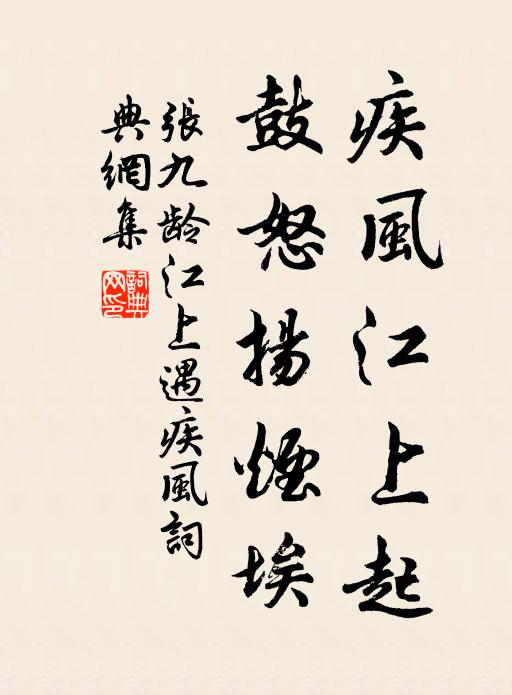 疾風江上起
鼓怒揚煙埃
張九龄江上遇疾風詞
典網集
詞典
网印